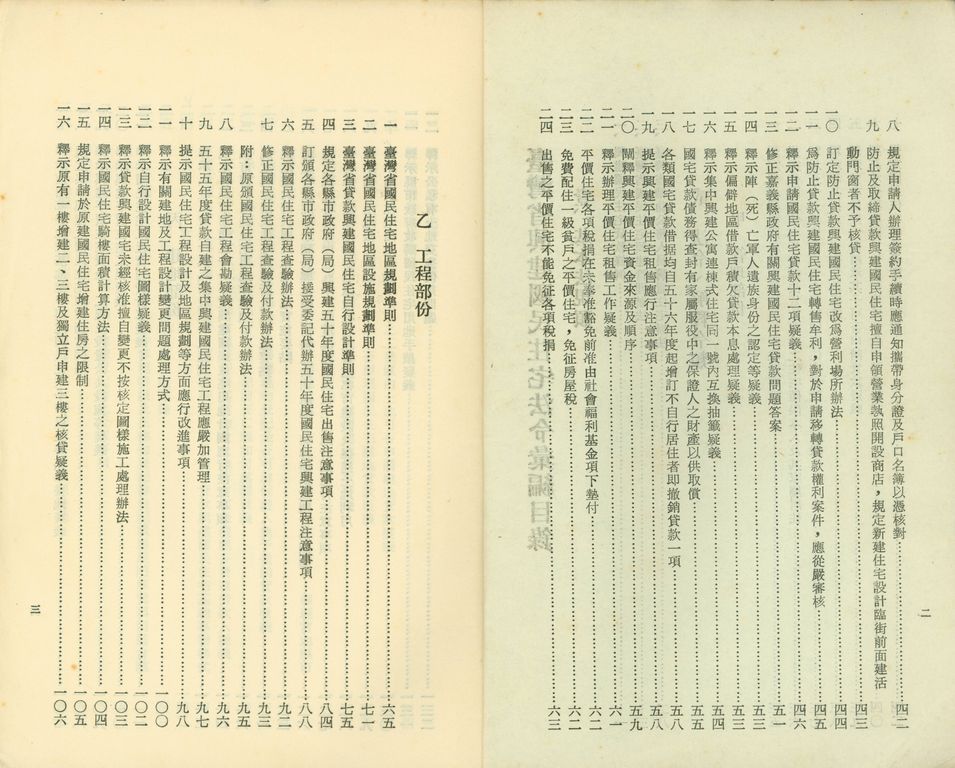 八　規定申請人辦理簽約手續時應通知攜帶身分證及戶口名簿以憑核對…………四二
九　防止及取締貸款興建國民住宅擅自申領營業執照開設商店，規定新建住宅設計臨街前面建活
動門窗者不予核貸…………四三
一〇　訂定防止貸款興建國民住宅改爲營利場所辦法…………四四
一一　爲防止貸款興建國民住宅轉售牟利，對於申請移轉貸款權利案件，應從嚴審核…………四五
一二　釋示申請國民住宅貸款十二項疑義…………四六
一三　修正嘉義縣政府有關興建國民住宅貸款問題答案…………五一
一四　釋示陣（死）亡軍人遺族身份之認定等疑義…………五三
一五　釋示偏僻地區借款戶積欠貸款本息處理疑義…………五三
一六　釋示集中興建公寓連棟式住宅同一號內互換抽籤疑義…………五四
一七　國宅貸款債務得查封有家屬服役中之保證人之財產以供取償…………五五
一八　各類國宅貸款借据均自五十六年度起增訂不自行居住者即撤銷貸款一項…………五八
一九　提示興建平價住宅租售應行注意事項…………五八
二〇　闡釋興建平價住宅資金來源及順序…………五九
二一　釋示辦理平價住宅租售工作疑義…………六一
二二　平價住宅各項稅捐在未奉准豁免前准由社會福利基金項下墊付…………六二
二三　免費配住一級貧戶之平價住宅，免征房屋稅…………六二
二四　出售之平價住宅不能免征各項稅捐…………六三
二
乙　工程部份
一　臺灣省國民住宅地區規劃準則…………六五
二　臺灣省國民住宅地區設施規劃準則…………七一
三　臺灣省貸款興建國民住宅自行設計準則…………七五
四　規定各縣市政府（局）興建五十年度國民住宅出售注意事項…………八四
五　訂頒各縣市政府（局）接受委託代辦五十年度國民住宅興建工程注意事項…………八八
六　釋示國民住宅工程查驗辦法…………九二
七　修正國民住宅工程查驗及付款辦法…………九三
附：原頒國民住宅工程查驗及付款辦法…………九五
八　釋示國民住宅工程會勘疑義…………九六
九　五十五年度貸款自建之集中興建國民住宅工程應嚴加管理…………九七
十　提示國民住宅工程設計及地區規劃等方面應行改進事項…………九八
一一　釋示有關建地及工程設計變更問題處理方式…………一〇〇
一二　釋示自行設計國民住宅圖樣疑義…………一〇二
一三　釋示貸款興建國宅未經核准擅自變更不按核定圖樣施工處理辦法…………一〇三
一四　釋示國民住宅騎樓面積計算方法…………一〇四
一五　規定申請於原建國民住宅增建住房之限制…………一〇五
一六　釋示原有一樓增建二、三樓及獨立戶申建三樓之核貸疑義…………一〇六
三